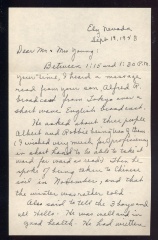 Ely Nevada
Sept. 19, 1953
Dear Mr & Mrs Young:
Between 11:15 and 11:30 P.M.
your time, I heard a message
read from your son, Alfred D.
broadcast from Tokyo on
short wave, English broadcast.
He asked about three people
Albert and Robbie being two of them
I wished very much for
in short hand to be able to get it
word for word as read. Then he
spoke of being taken to Chinese
soil in November, and that
the weather was rather cold
Also said to tell the 3 boys and
all Hello. He was well and in
good health. He had written,